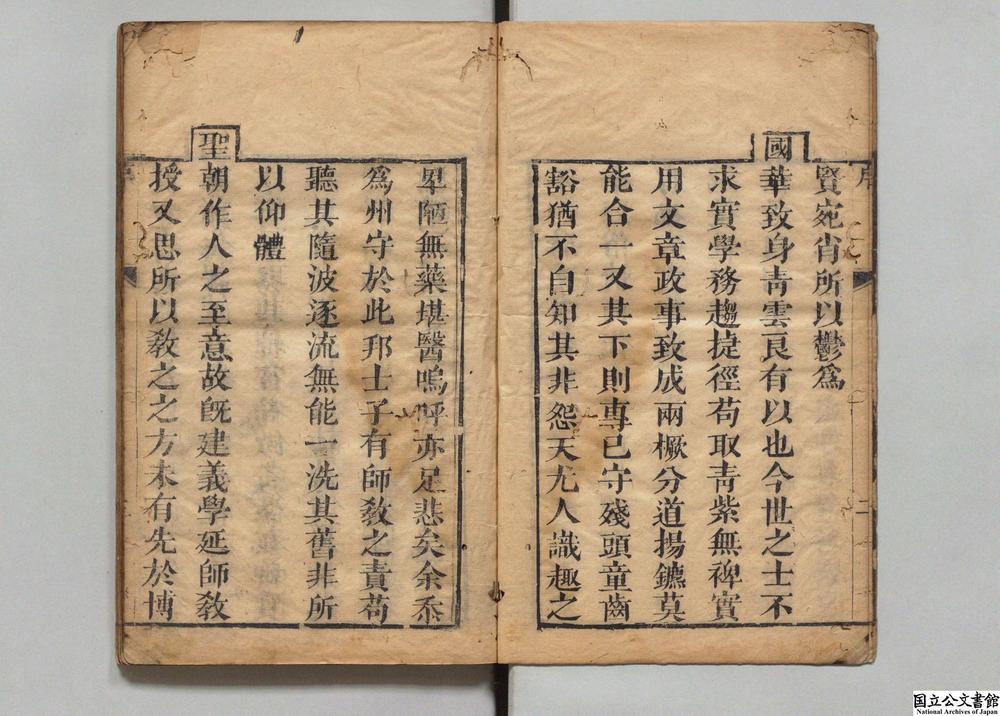 序
二
賢宛肖所以鬱爲
國華致身靑雲良有以也今世之士不
求實學務趨捷徑苟取靑紫無裨實
用文章政事致成兩橛分道揚鑣莫
能合一又其下則專已守殘頭童齒
豁猶不自知其非怨天尤人識趣之
卑陋無藥堪醫嗚呼亦足悲矣余忝
爲州守於此邦士子有師敎之責苟
聽其隨波逐流無能一洗其舊非所
以仰體
聖朝作人之至意故旣建義學延師敎
授又思所以敎之之方未有先於博
国立公文書館
National Archives of Japan